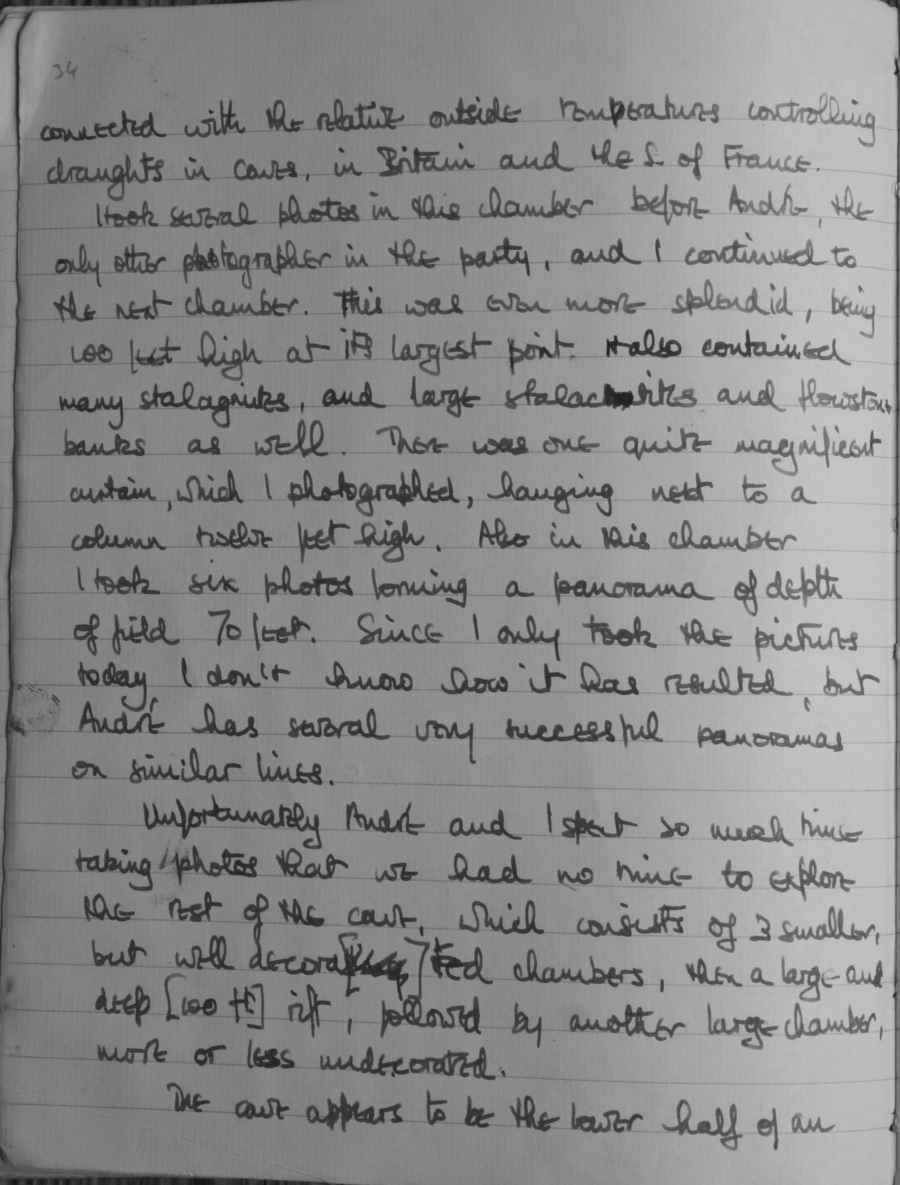 34
connected with the relative outside temperatures controlling
draughts in caves, in Britain and the S. of France.
I took several photos in this chamber before André, the
only other photographer in the party, and I continued to
the next chamber. This was even more splendid, being
100 feet high at its largest point. It also contained
many stalagmites, and large stalactites and flowstone
banks as well. There was one quite magnificent
curtain, which I photographed, hanging next to a
column twelve feet high. Also in this chamber
I took six photos forming a panorama of depth
of field 70 feet. Since I only took the pictures
today, I don't know how it has resulted, but
André has several very successful panoramas
on similar lines.
Unfortunately André and I spent so much time
taking photos that we had no time to explore
the rest of the cave, which consists of 3 smaller,
but well decorated chambers, then a large and
deep [100 ft] rift, followed by another large chamber,
more or less undecorated.
The cave appears to be the lower half of an